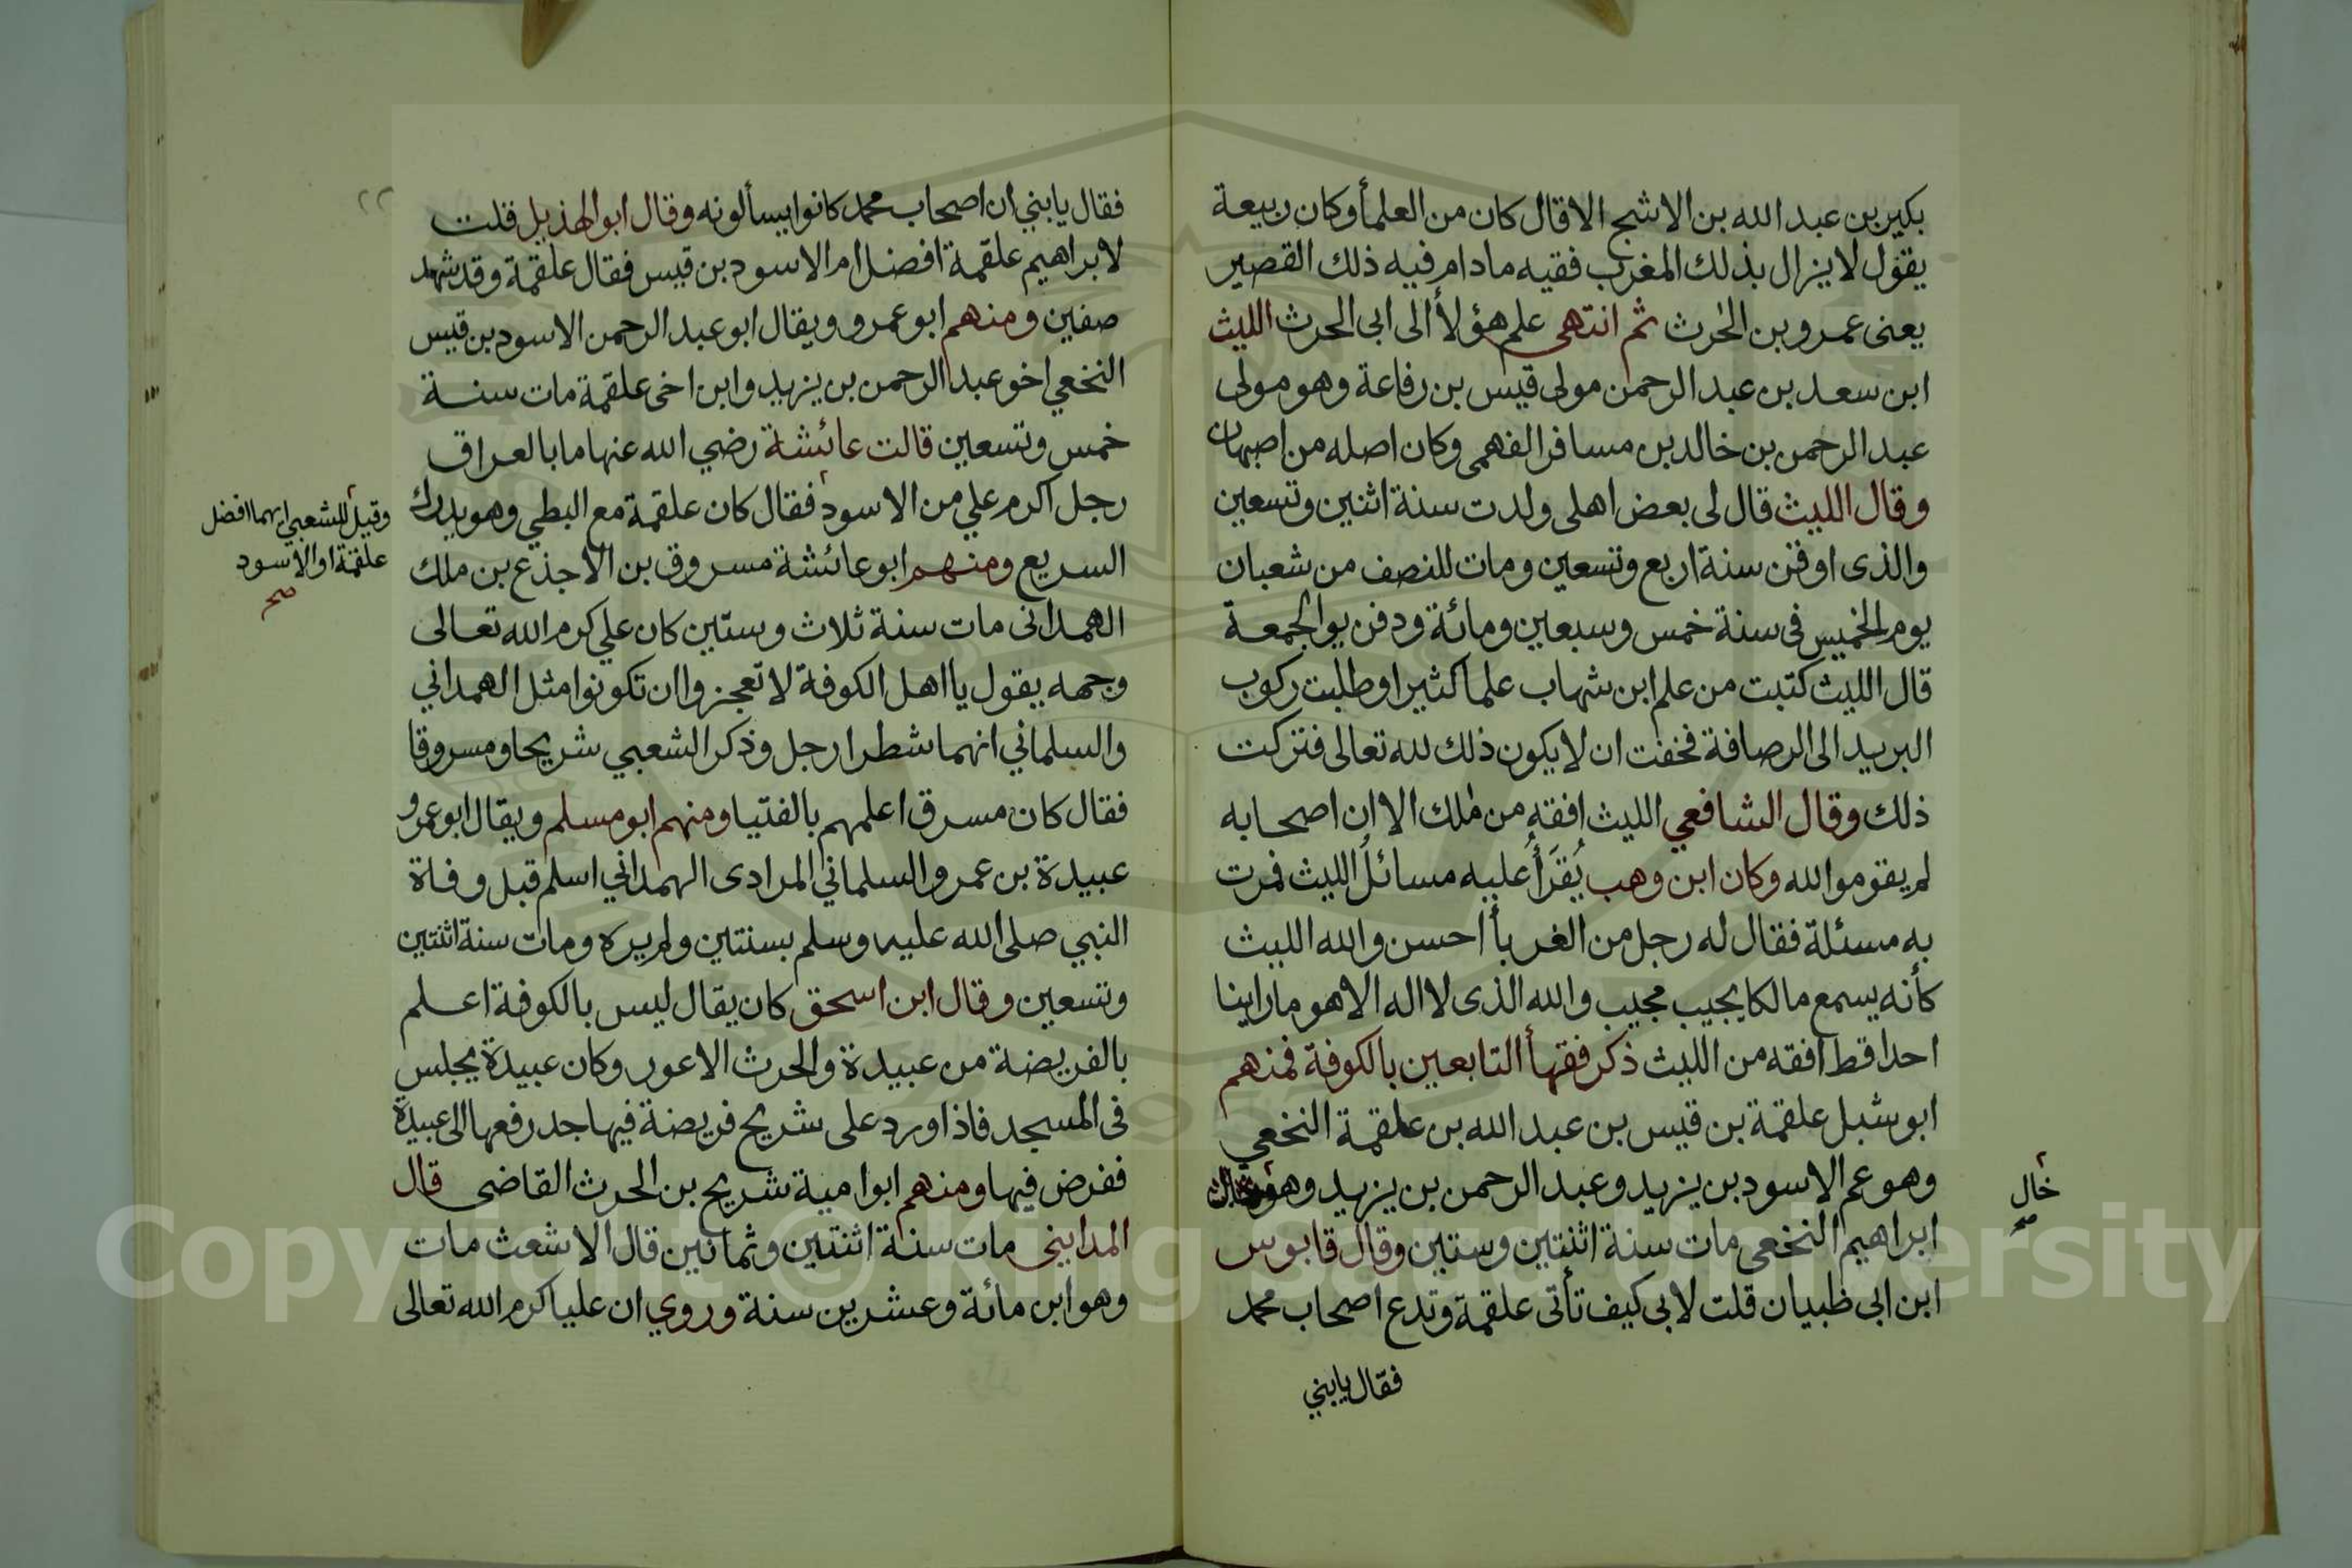 بكير بن عبد الله بن الاشج الا قال كان من العلمأ وكان ربيعة
يقول لا يزال بذلك المغرب فقيه ما دام فيه ذلك القصير
يعنى عمرو بن الحٰرث ثم انتهى علم هؤلأ الى ابى الحرث الليث
ابن سعد بن عبد الرحمن مولى قيس بن رفاعة وهو مولى
عبد الرحمن بن خالد بن مسافر الفهمى وكان اصله من اصبهان
وقال الليث قال لى بعض اهلى ولدت سنة اثنين وتسعين
والذى اوقن سنة اربع وتسعين ومات للنصف من شعبان
يوم الخميس فى سنة خمس وسبعين ومائة ودفن يوالجمعة
قال الليث كتبت من علم ابن شهاب علما كثيرا وطلبت ركوب
البريد الى الرصافة فخفت ان لا يكون ذلك لله تعالى فتركت
ذلك وقال الشافعي الليث افقه من مٰلك الا ان اصحابه
لم يقوموا لله وكان ابن وهب يُقرَأُ عليه مسائلُ الليث فمرت
به مسئلة فقال له رجل من الغربأ احسن والله الليث
كأنه يسمع مالكا يجيب مجيب والله الذى لا اله الا هو ما راينا
احدا قط افقه من الليث ذكر فقهأ التابعين بالكوفة فمنهم
ابو شبل علقمة بن قيس بن عبد الله بن علقمة النخعي
وهو عم الاسود بن يزيد وعبد الرحمن بن يزيد وهو
خال
صح
ابراهيم النخعى مات سنة اثنتين وستين وقال قابوس
ابن ابى ظبيان قلت لابى كيف تأتى علقمة وتدع اصحاب محمد
فقال يابني
٢٢
فقال يابني ان اصحاب محمد كانوا يسألونه وقال ابو الهذيل قلت
لابراهيم علقمة افضل ام الاسود بن قيس فقال علقمة وقد شهد
صفين ومنهم ابو عمرو ويقال ابو عبد الرحمن الاسود بن قيس
النخعي اخو عبد الرحمن بن يزيد وابن اخى علقمة مات سنة
خمس وتسعين قالت عائشة رضي الله عنها ما بالعراق
رجل اكرم علي من الاسود فقال كان علقمة مع البطي وهو يدرك
وقيل للشعبي ايهما افضل
علقمة او الاسود
صح
السريع ومنهم ابو عائشة مسروق بن الاجذع بن ملك
الهمدانى مات سنة ثلاث وستين كان علي كرم الله تعالى
وجهه يقول يا اهل الكوفة لا تعجزوا ان تكونوا مثل الهمداني
والسلماني انهما شطرا رجل وذكر الشعبي شريحا ومسروقا
فقال كان مسرق اعلمهم بالفتيا ومنهم ابو مسلم ويقال ابو عمرو
عبيدة بن عمرو السلماني المرادى الهمداني اسلم قبل وفاة
النبي صلى الله عليه وسلم بسنتين ولم يره ومات سنة اثنتين
وتسعين وقال ابن اسحق كان يقال ليس بالكوفة اعلم
بالفريضة من عبيدة والحرث الاعور وكان عبيدة يجلس
فى المسجد فاذا ورد على شريح فريضة فيها جد رفعها الى عبيدة
ففرض فيها ومنهم ابو امية شريح بن الحرث القاضى قال
المدايني مات سنة اثنتين وثمانين قال الاشعث مات
وهو ابن مائة وعشرين سنة وروي ان عليا كرم الله تعالى
Copyright © King Saud University